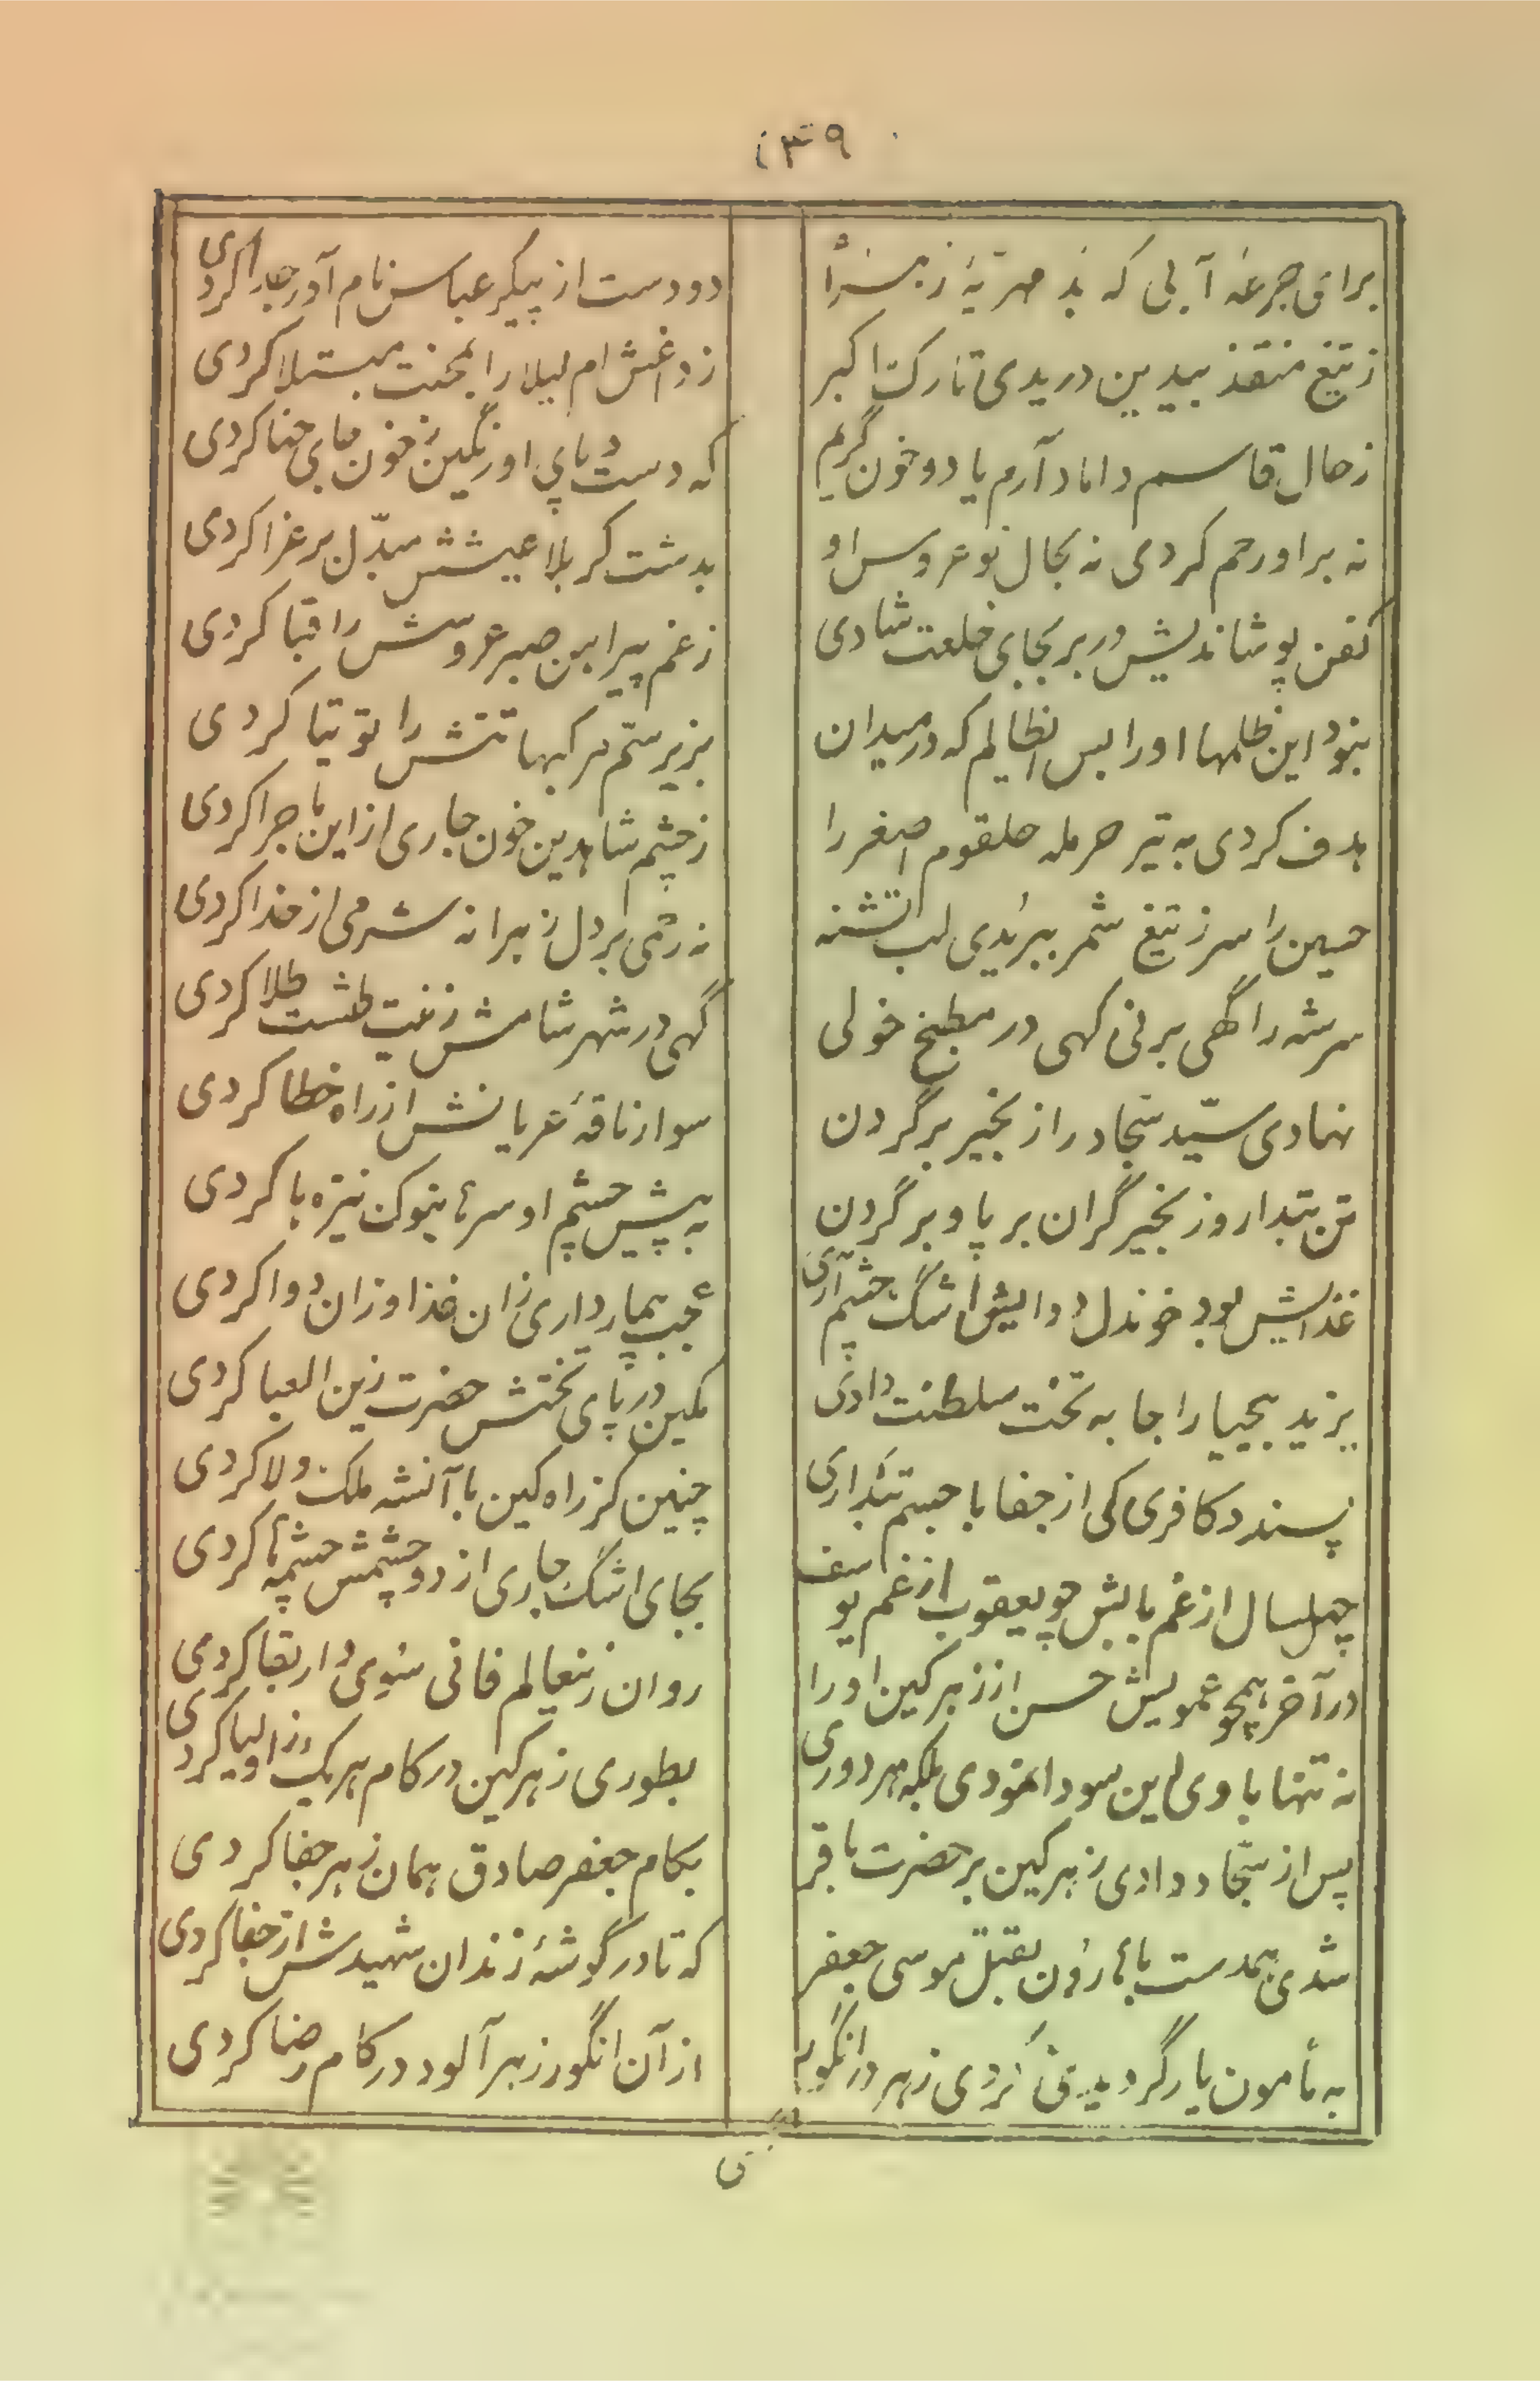 ۱۳۹
برای جرعه آبی که بد مهریهٔ زهرا
دو دست از پیکر عباس نام آور جدا کردی
ز تیغ منقذ بیدین دریدی تارک اکبر
ز داغش ام لیلا را بمحنت مبتلا کردی
ز حال قاسم داماد آرم یاد و خون گریم
که دست و پای او رنگین ز خون جای حنا کردی
نه بر او رحم کردی نه بحال نو عروس او
بدشت کربلا عیشش مبدّل بر عزا کردی
کفن پوشاندیش در بر بجای خلعت شادی
ز غم پیراهن صبر عروسش را قبا کردی
نبود این ظلمها او را بس ایظالم که در میدان
بزیر ستم مرکبها تنش را توتیا کردی
هدف کردی به تیر حرمله حلقوم اصغر را
ز چشم شاهدین خون جاری از این ماجرا کردی
حسین را سر ز تیغ شمر ببریدی لب تشنه
نه رحمی بر دل زهرا نه شرمی از خدا کردی
سرشه را گهی بر نی گهی در مطبخ خولی
گهی در شهر شامش زینت طشت طلا کردی
نهادی سیّد سجاد را زنجیر بر گردن
سوار ناقهٔ عریانش از راه خطا کردی
تن تبدار و زنجیر گران بر پا و بر گردن
به پیش چشم او سرها بنوک نیزه ها کردی
غذایش بود خوندل دوایش اشک چشم آری
عجب بیمار داری زان غذا و زان دوا کردی
یزید بیحیا را جا به تخت سلطنت دادی
مکین در پای تختش حضرت زین العبا کردی
پسندد کافری کی از جفا با جسم تبداری
چنین کز راه کین با آنشه ملک ولا کردی
چهلسال از غم بابش چو یعقوب از غم یوسف
بجای اشک جاری از دو چشمش چشمه ها کردی
در آخر همچو عمویش حسن از زهر کین او را
روان زینعالم فانی سوی دار بقا کردی
نه تنها با وی این سودا نمودی بلکه هر دوری
بطوری زهر کین در کام هر یک ز اولیا کردی
پس از سجاد دادی زهر کین بر حضرت باقر
بکام جعفر صادق همان زهر جفا کردی
شدی همدست با هارون بقتل موسی جعفر
که تا در گوشهٔ زندان شهیدش از جفا کردی
به مأمون یار گردیدی کردی زهر در انگور
از آن انگور زهر آلود در کام رضا کردی